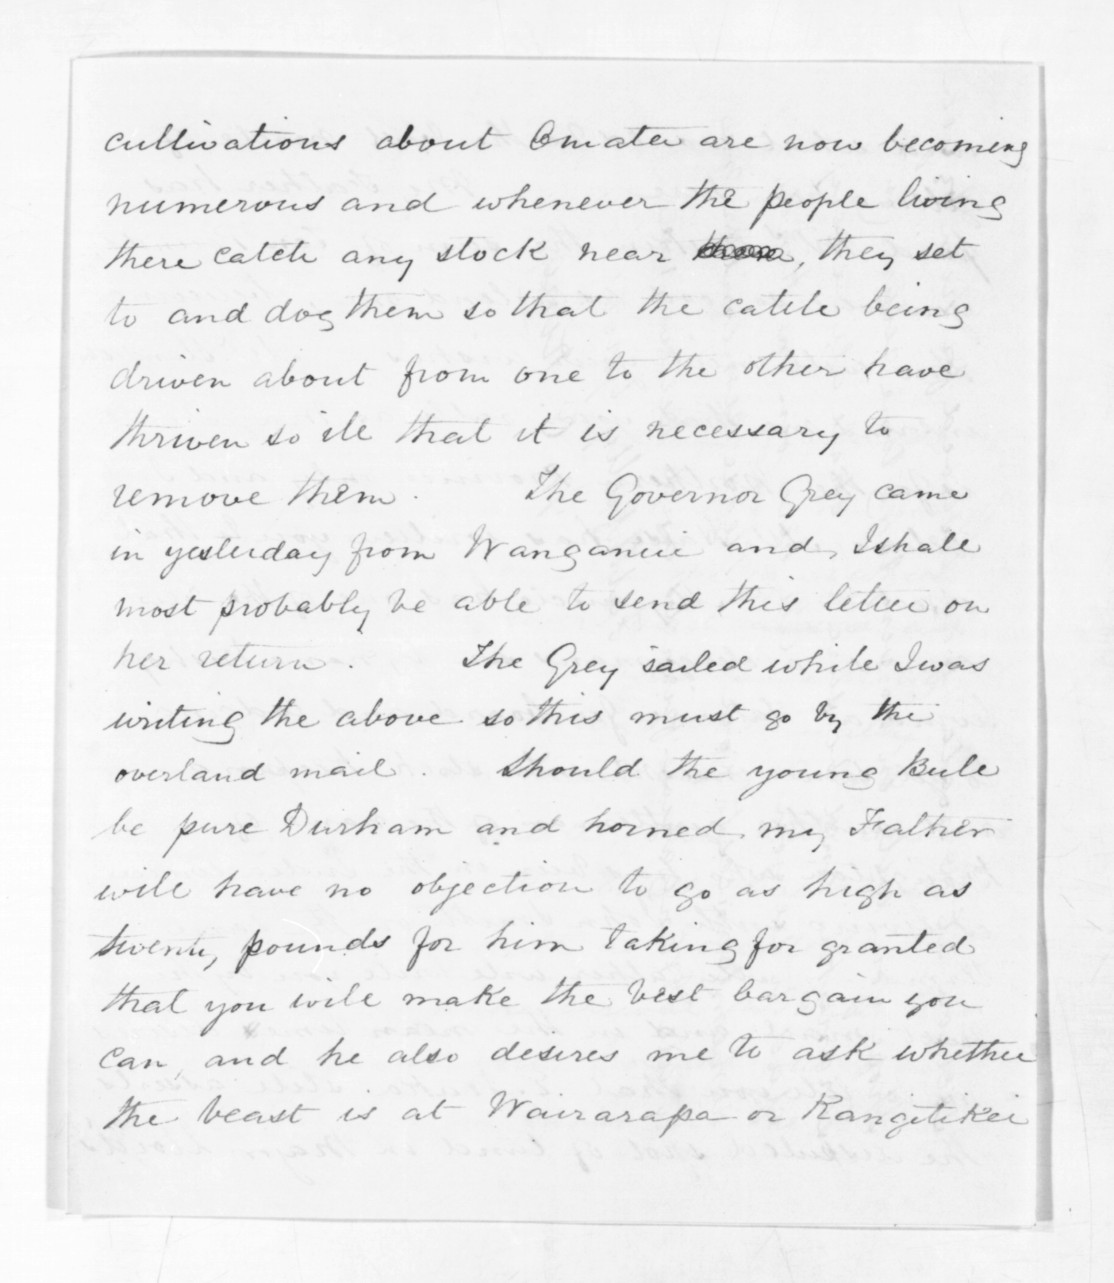 cultivations about Omata are now becoming
numerous and whenever the people living
there catch any stock near , they set
to and dog them so that the cattle being
driven about from one to the other have
thriven so ill that it is necessary to
remove them. The Governor Grey came
in yesterday from Wanganui and I shall
most probably be able to send this letter on
her return. The Grey sailed while I was
writing the above so this must go by the
overland mail. Should the young Bull
be pure Durham and horned my Father
will have no objection to go as high as
twenty pounds for him taking for granted
that you will make the best bargain you
can, and he also desires me to ask whether
the beast is at Wairarapa or Rangitikei